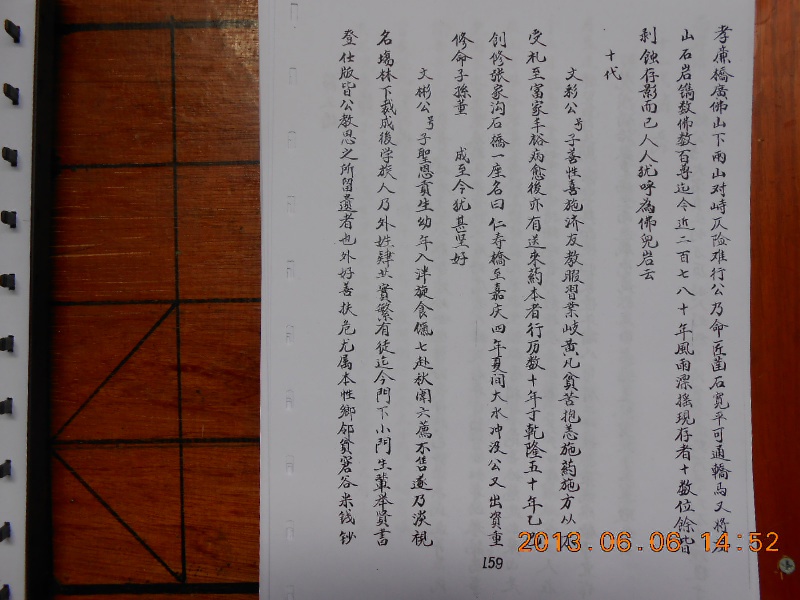 孝廉橋廣佛山下兩山对峙仄险难行公乃命匠凿石寬平可通轎馬又將
山石岩鐫数佛数百尊迄今近二百七八十年風雨漂摇現存者十数位餘皆
剥蝕存影而已人人犹呼為佛兒岩云
十代
文彩公号子善性喜施济友教暇習業岐黄凡貧苦抱恙施药施方从不
受札至富家丰裕病愈後亦有送來药本者行历数十年于乾隆五十年乙
创修张家沟石橋一座名曰仁寿橋至嘉庆四年夏间大水冲没公又出資重
修命子孫董 成至今犹甚坚好
文彬公号子聖恩貢生幼年入泮旋食饩七赴秋闱六薦不售遂乃淡視
名塲林下裁成後学族人乃外姓肄业實繁有徒迄今門下小門生輩举贤書
登仕版皆公教思之所留遺者也外好善扶危尤属本性鄉邻貧窘谷米钱钞
159
2013.06.06 14:52